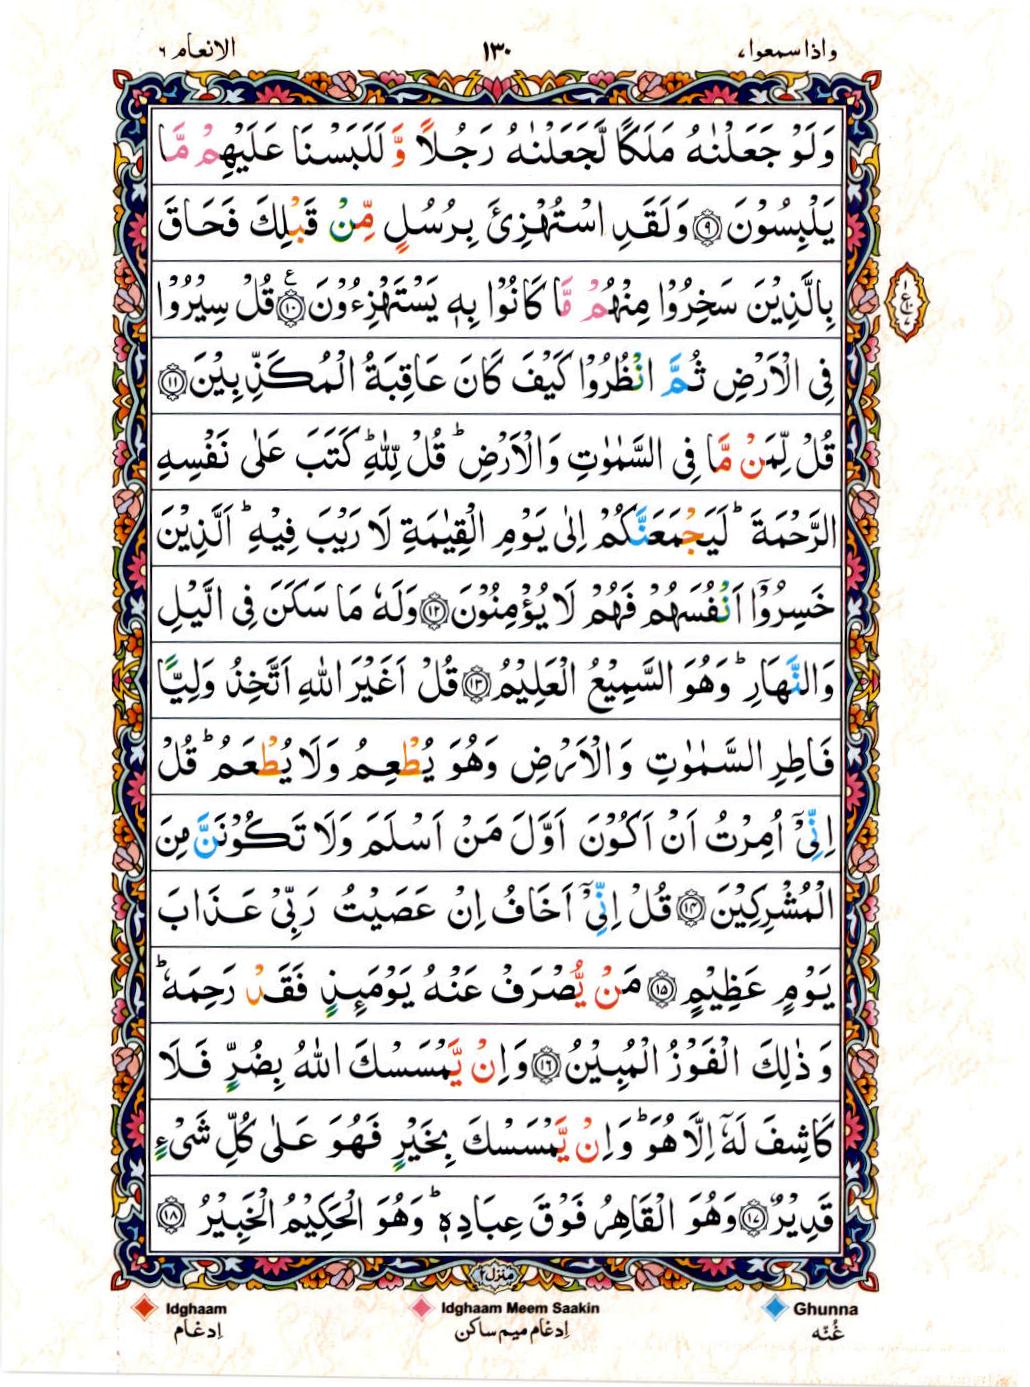 الانعام ٦ ١٣٠ واذا سمعوا ٧
وَلَوْ جَعَلْنٰهُ مَلَكًا لَّجَعَلْنٰهُ رَجُلًا وَّ لَلَبَسْنَا عَلَيْهِمْ مَّا
يَلْبِسُوْنَ ﴿٩﴾ وَلَقَدِ اسْتُهْزِئَ بِرُسُلٍ مِّنْ قَبْلِكَ فَحَاقَ
بِالَّذِيْنَ سَخِرُوْا مِنْهُمْ مَّا كَانُوْا بِهٖ يَسْتَهْزِءُوْنَ ﴿١٠﴾ۧ قُلْ سِيْرُوْا
فِى الْاَرْضِ ثُمَّ انْظُرُوْا كَيْفَ كَانَ عَاقِبَةُ الْمُكَذِّبِيْنَ ﴿١١﴾
قُلْ لِّمَنْ مَّا فِى السَّمٰوٰتِ وَالْاَرْضِ ؕ قُلْ لِّلّٰهِ ؕ كَتَبَ عَلٰى نَفْسِهِ
الرَّحْمَةَ ؕ لَيَجْمَعَنَّكُمْ اِلٰى يَوْمِ الْقِيٰمَةِ لَا رَيْبَ فِيْهِ ؕ اَلَّذِيْنَ
خَسِرُوْۤا اَنْفُسَهُمْ فَهُمْ لَا يُؤْمِنُوْنَ ﴿١٢﴾ وَلَهٗ مَا سَكَنَ فِى الَّيْلِ
وَالنَّهَارِ ؕ وَهُوَ السَّمِيْعُ الْعَلِيْمُ ﴿١٣﴾ قُلْ اَغَيْرَ اللّٰهِ اَتَّخِذُ وَلِيًّا
فَاطِرِ السَّمٰوٰتِ وَالْاَرْضِ وَهُوَ يُطْعِمُ وَلَا يُطْعَمُ ؕ قُلْ
اِنِّىْۤ اُمِرْتُ اَنْ اَكُوْنَ اَوَّلَ مَنْ اَسْلَمَ وَلَا تَكُوْنَنَّ مِنَ
الْمُشْرِكِيْنَ ﴿١٤﴾ قُلْ اِنِّىْۤ اَخَافُ اِنْ عَصَيْتُ رَبِّىْ عَذَابَ
يَوْمٍ عَظِيْمٍ ﴿١٥﴾ مَنْ يُّصْرَفْ عَنْهُ يَوْمَئِذٍ فَقَدْ رَحِمَهٗ ؕ
وَذٰلِكَ الْفَوْزُ الْمُبِيْنُ ﴿١٦﴾ وَاِنْ يَّمْسَسْكَ اللّٰهُ بِضُرٍّ فَلَا
كَاشِفَ لَهٗۤ اِلَّا هُوَ ؕ وَاِنْ يَّمْسَسْكَ بِخَيْرٍ فَهُوَ عَلٰى كُلِّ شَىْءٍ
قَدِيْرٌ ﴿١٧﴾ وَهُوَ الْقَاهِرُ فَوْقَ عِبَادِهٖ ؕ وَهُوَ الْحَكِيْمُ الْخَبِيْرُ ﴿١٨﴾
منزل ٢
Idghaam Idghaam Meem Saakin Ghunna
اِدغام اِدغام میم ساکن غُنّه